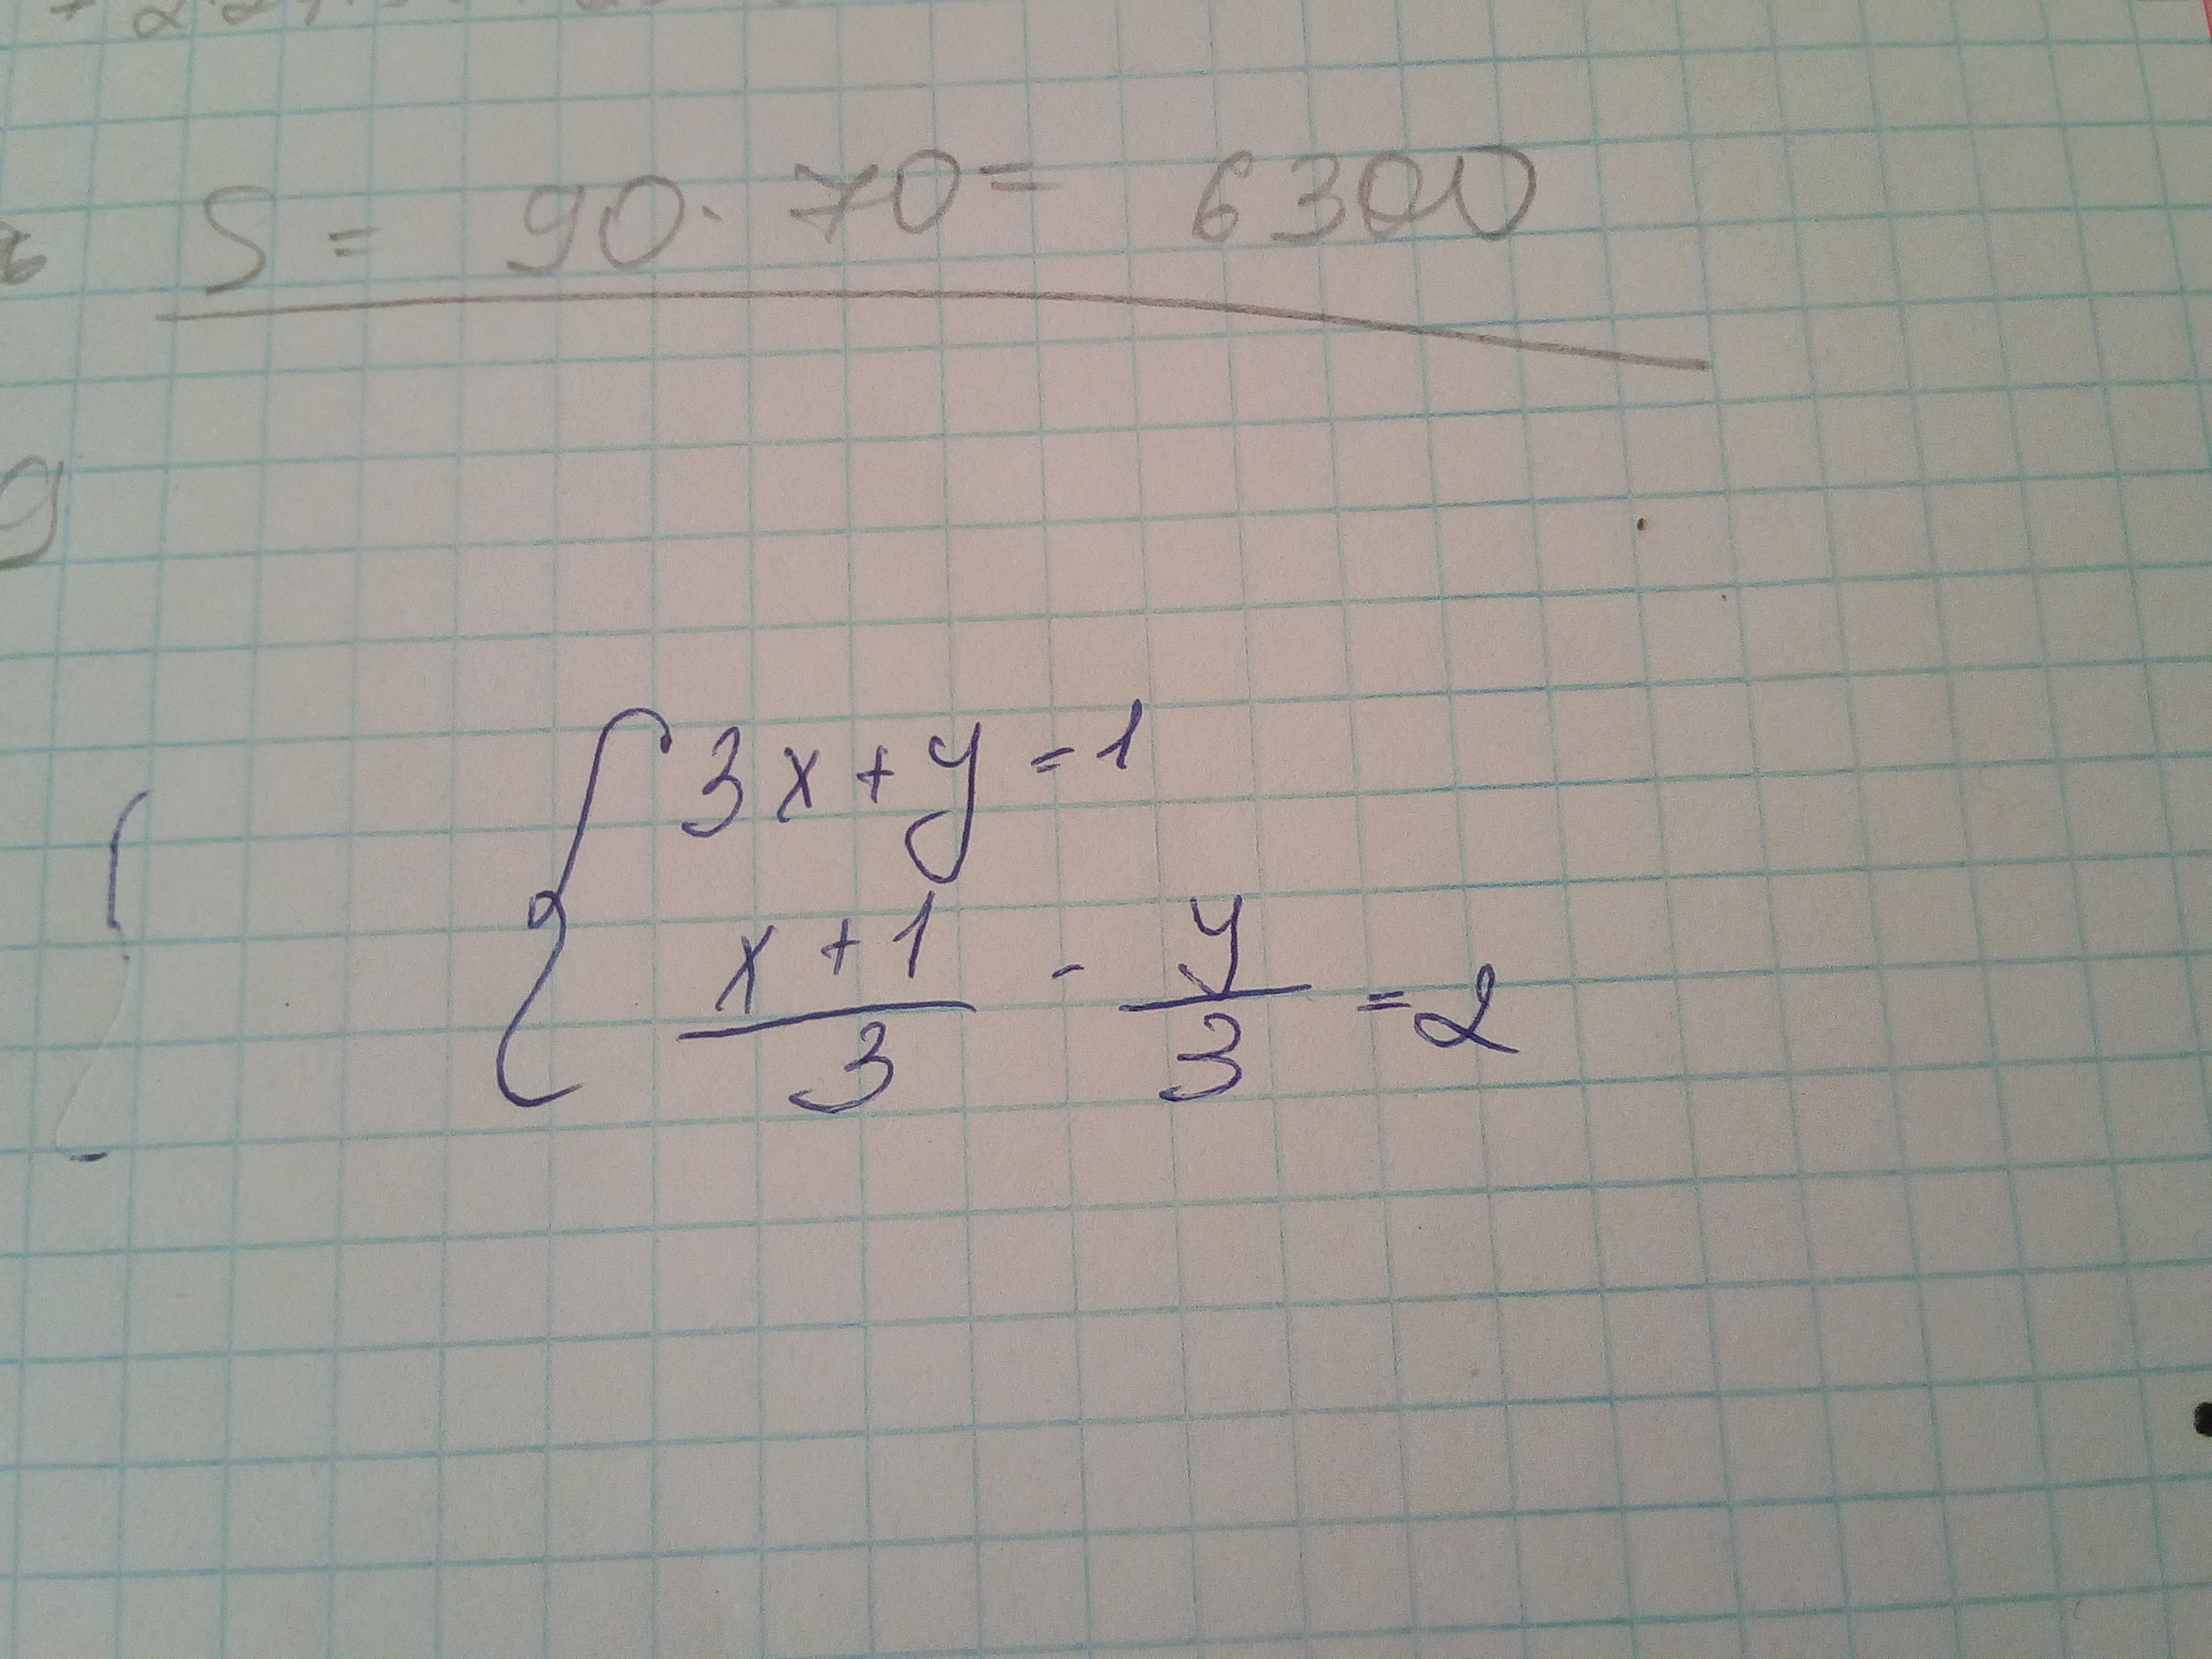 S = 90 · 70 = 6300
9
3x + y = 1
x + 1 / 3 - y / 3 = 2